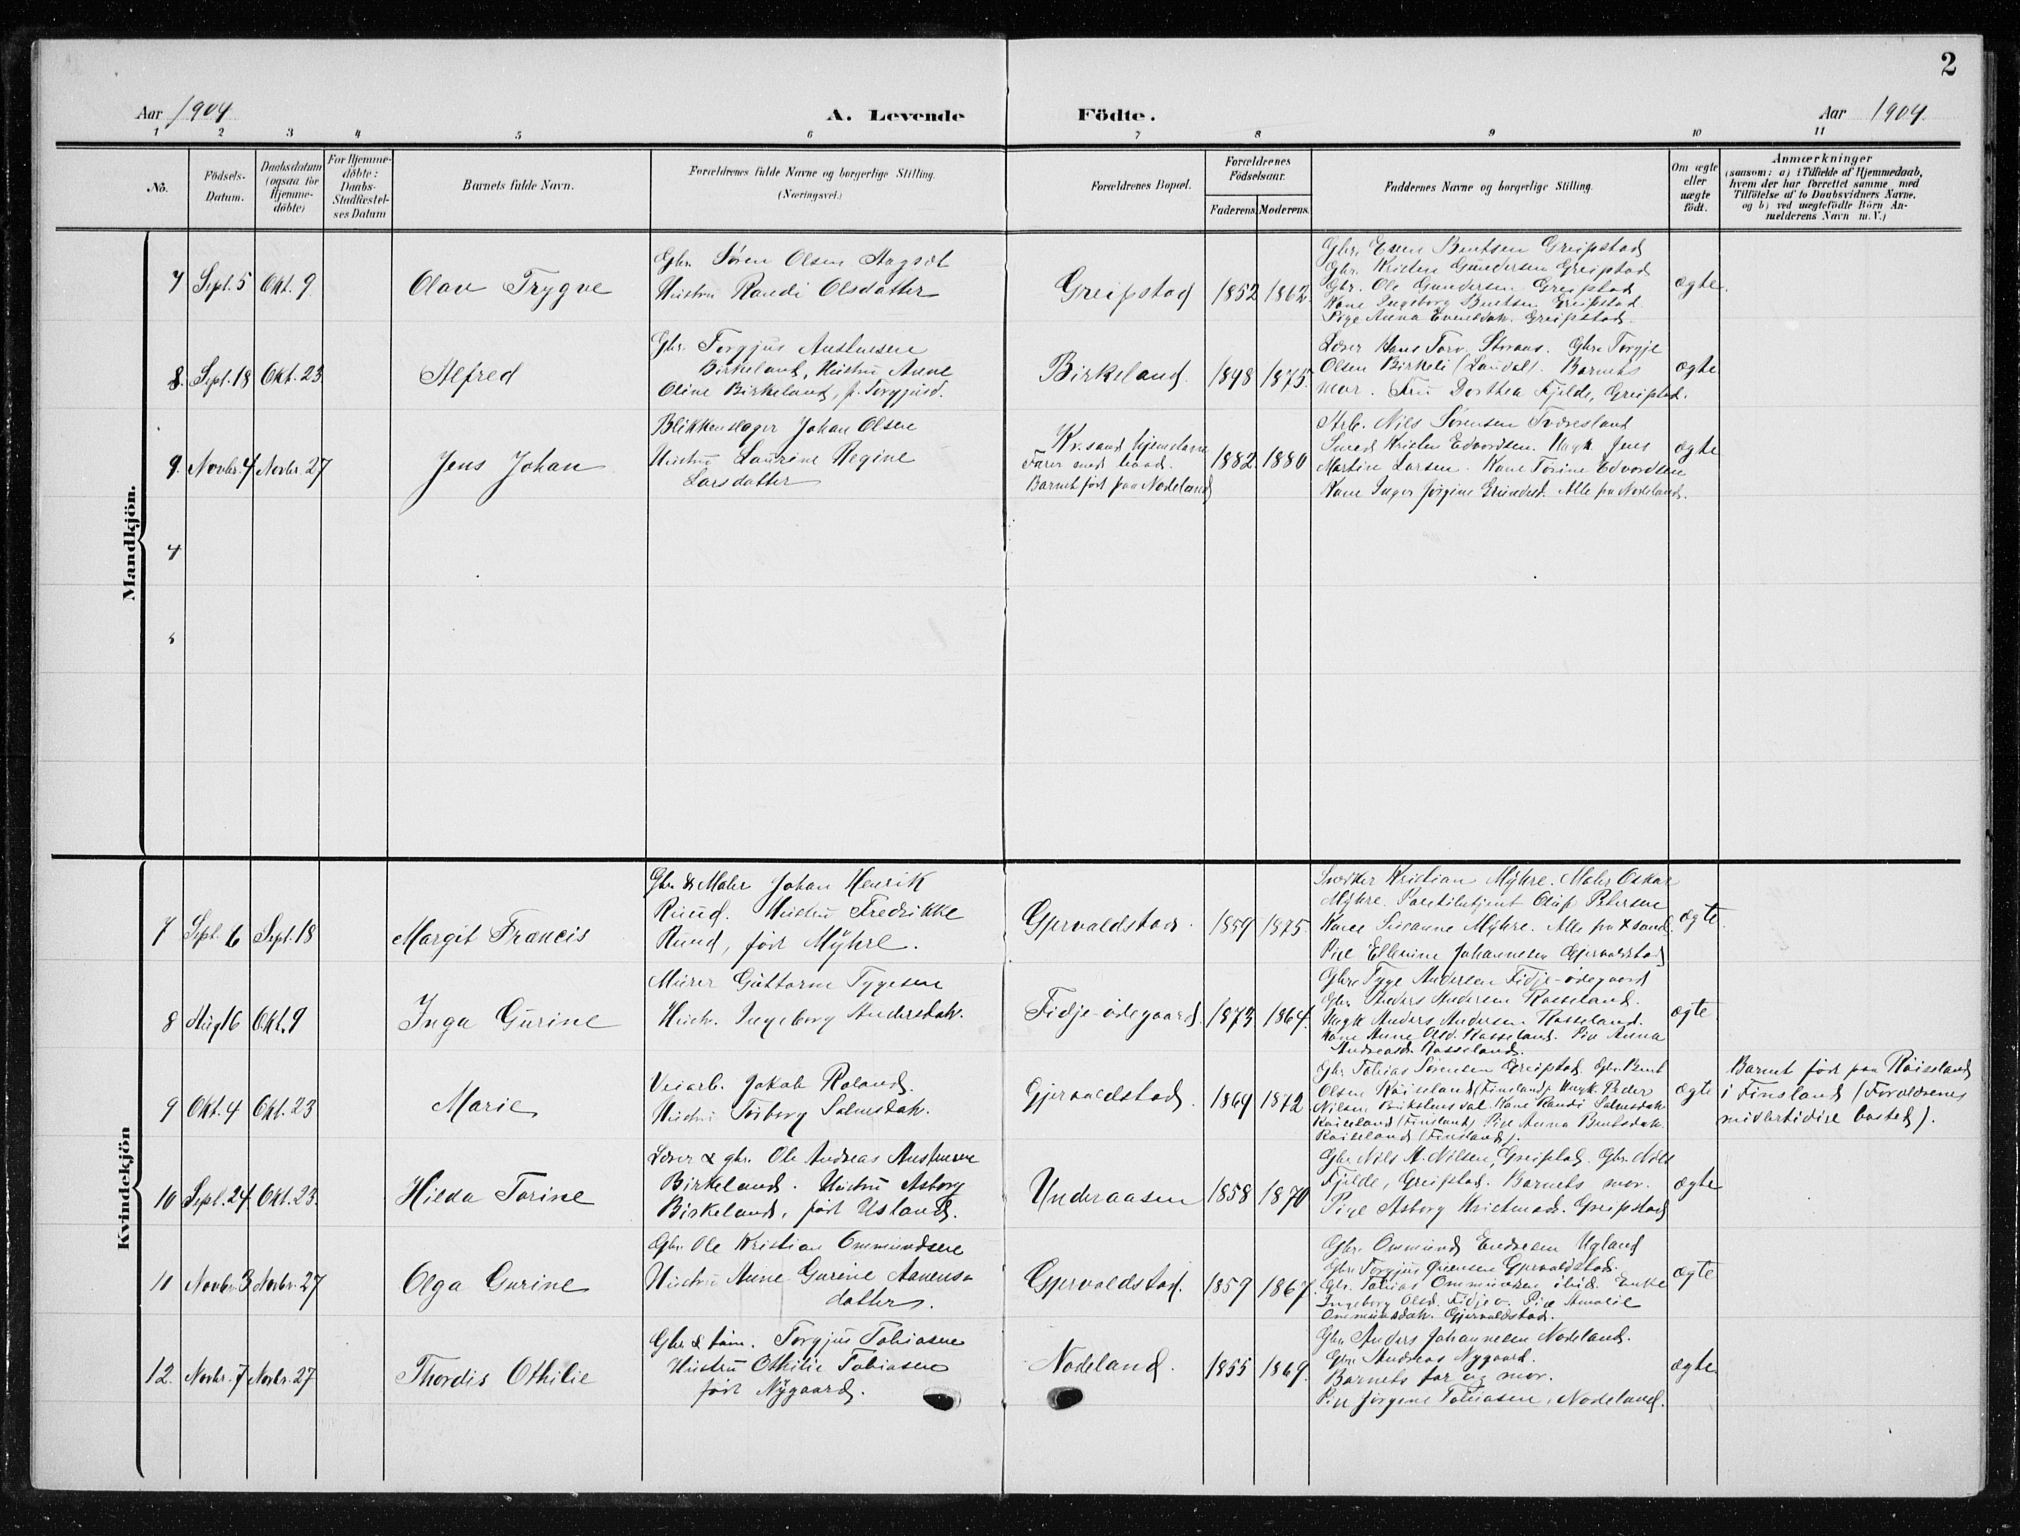 2
Aar 1904
A. Levende
Födte.
Aar 1904.
1 2 3 4 5 6 7 8 9 10 11
No.
Födsels-
Datum.
Daabsdatum
(ogsaa for
Hjemme-
döbte)
For Hjemme-
döbte:
Daabs-
Stadfæstel-
ses Datum
Barnets fulde Navn.
Forældrenes fulde Navne og borgerlige Stilling.
(Næringsvei.)
Forældrenes Bopæl.
Forældrenes
Födselsaar.
Faderens.
Moderens.
Faddernes Navne og borgerlige Stilling.
Om ægte
eller
uægte
födt.
Anmærkninger
(saasom: a) i Tilfælde af Hjemmedaab,
hvem der har forrettet samme med
Tilföielse af to Daabsvidners Navne,
og b) ved uægtefödte Börn An-
melderens Navn m. V.)
Mandkjön.
7 Sept. 5 Okt. 9. Olav Trygve
Gbr. Søren Olsen
Hustru Randi Olsdatter
Greipstad 1852 1862
Gbr. Even Bentsen Greipstad
Gbr. Kristen Gundersen Greipstad
Gbr. Ole Gundersen Greipstad
Kone Ingeborg Bentsen Greipstad
Pige Anna Evensdatr. Greipstad.
ægte.
8. Sept. 18 Okt. 23 Alfred
Gbr. Torgjus Austensen
Birkeland, Hustru Anne
Oline Birkeland, f. Torgjusd.
Birkeland. 1848 1875.
Lærer Hans Torv. Gbr. Torgje
Olsen Birkeli (Laudal). Barnets
mor. Fru Dorthea Fjelde, Greipstad.
ægte
9. Novbr. 4 Novbr. 27 Jens Johan
Blikkenslager Johan Olsen
Hustru Laurine Regine
Larsdatter
Kr.sand hjemstavn
Farer med haand.
Barnet født paa Nodeland
1882. 1880
Arb. Nils Sørensen Tveresland
Smed Kristen Edvardsen. Ungk. Jens
Martin Larsen. Kone Torine Edvardsen
Kone Inger Jørgine Alle fra Nodeland.
ægte
4
Kvindekjön
7 Sept. 6 Sept. 18 Margit Francis
Gbr. & Maler Johan Henrik
Ruud. Hustru Fredrikke
Ruud, født Mÿhre.
Gjervaldstad. 1859 1875.
Snedker Kristian Mÿhre. Maler Oskar
Mÿhre. Oluf Petersen
Kone Susanne Mÿhre. Alle fra Xsand.
Pige Ellerine Johannesen Gjervaldstad
ægte
8 Aug 16 Okt. 9 Inga Gurine
Murer Guttorm Tygesen
Hustr. Ingeborg Andersdatr.
Fidje-ødegaard. 1873 1864.
Gbr. Tyge Andersen Fidje-ødegaard
Gbr. Anders Andersen Rosseland.
Ungk. Anders Andersen. Rosseland.
Kone Anne Olsd. Rosseland. Pie Anna
Andreasd. Rosseland.
ægte
9 Okt. 4 Okt. 23 Marie
Veiarb. Jakob Roland.
Hustru Torborg Salvesdatr.
Gjervaldstad. 1869 1872
Gbr. Tobias Sørensen Greipstad. Gbr. Bent
Olsen Røiseland (Finsland). Ungk. Peder
Nilsen Eriksensdal. Kone Randi Salvesdatr.
Røiseland (Finsland) Pige Anna Bentsdatr.
Røiseland (Finsland).
ægte
Barnet født paa Røisseland
i Finsland (Forældrenes
midlertidige bosted).
10 Sept. 24 Okt. 23. Hilda Torine
Lærer & gbr. Ole Andreas Austensen
Birkeland. Hustru Asborg
Birkeland, født Usland.
Underaasen 1858 1870
Gbr. Nils A. Nilsen, Greipstad. Gbr. Nils
Fjelde, Greipstad. Barnets mor.
Pige Asborg Greipstad
ægte
11 Novbr. 3 Novbr. 27 Olga Gurine
Gbr. Ole Kristian Ommundsen
Hustru Anne Gurine Aanens-
datter.
Gjervaldstad. 1857 1867.
Gbr. Ommund Endresen Ugland
Gbr. Torgjus Gjervaldstad.
Gbr. Tobias Ommundsen ibid. Enke
Ingeborg Olsd. Fidje. Pige Amalie
Ommundsdatr. Gjervaldstad.
ægte
12. Novbr. 7 Novbr. 27 Thordis Othilie
Gbr. & Torgjus Tobiasen
Hustru Othilie Tobiasen
født Nÿgaard.
Nodeland. 1855 1869.
Gbr. Anders Johannesen Nodeland.
Gbr. Andreas Nygaard.
Barnets far og mor.
Pige Jørgine Tobiasen, Nodeland.
ægte